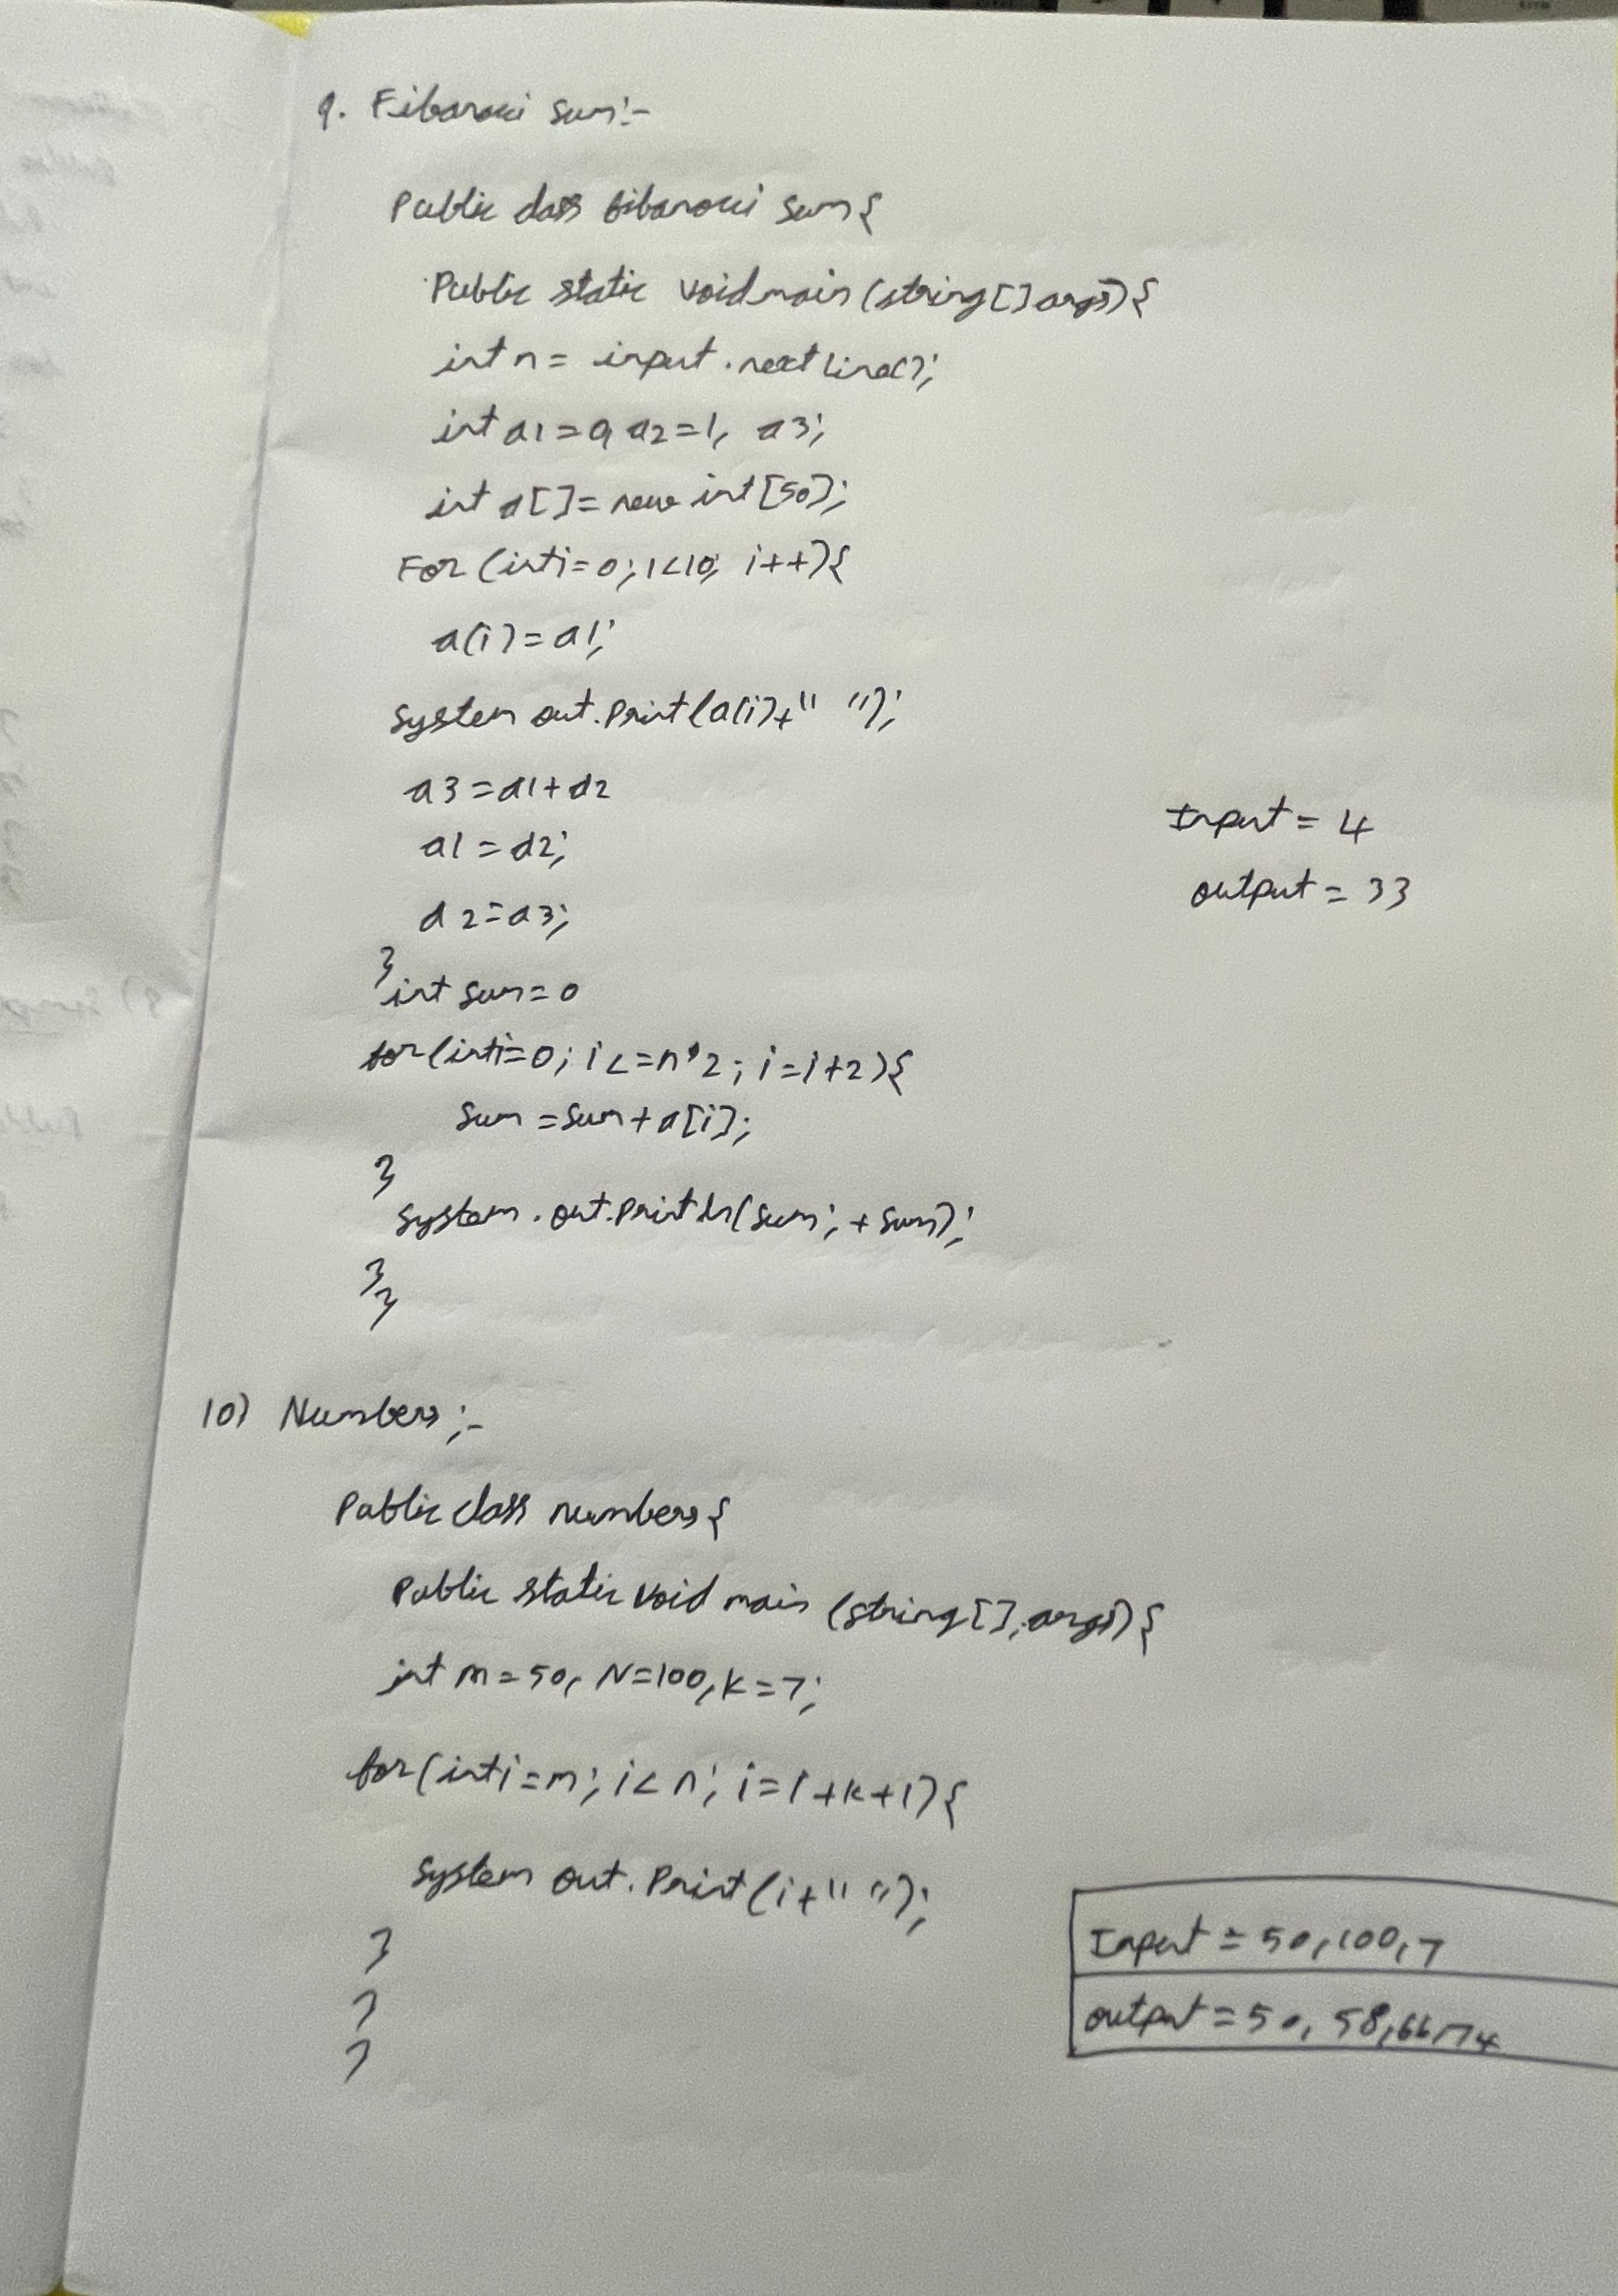 9. Fibanocci sum:-
Public class fibanocci sum{
Public static void main (string[] args) {
int n = input.nextLine();
int a1=0, a2=1, a3;
int a[]= new int [50];
For (int i=0; i<10; i++){
a(i)=a1;
System out.Print(a(i)+" ");
a3=a1+a2
a1=a2;
a2=a3;
Input = 4
output = 33
}
int sum=0
for(int i=0; i<=n*2; i=i+2){
sum=sum+a[i];
}
system.out.println(sum; +sum);
}
}
10) Numbers;-
Public class numbers{
Public static void main (string[], args) {
int m=50, N=100, k=7;
for(int i=m; i<n; i=i+k+1){
System out.Print(i+" ");
}
}
}
Input = 50,100,7
output = 50, 58,66,74